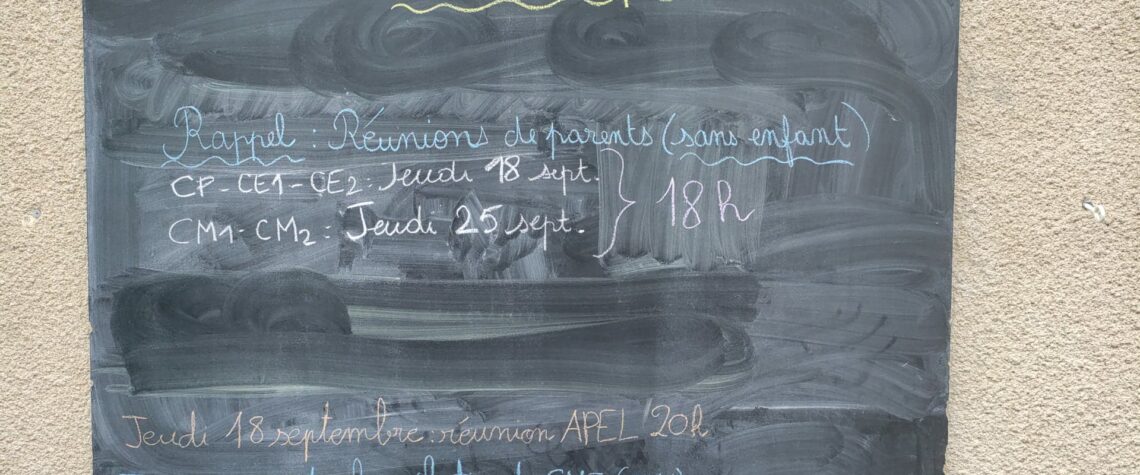 Rappel : Réunions de parents (sans enfant)
CP-CE1-CE2 : Jeudi 18 sept.
CM1-CM2 : Jeudi 25 sept.
} 18h
Jeudi 18 septembre : réunion APEL 20h